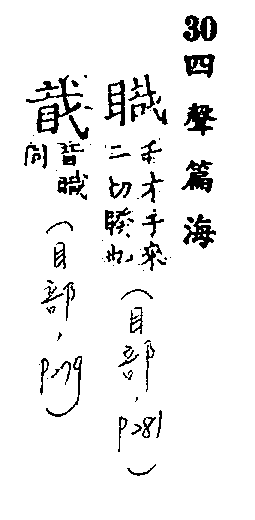 30 四聲篇海
千才手來
二切睽也
(目部,p281)
音
同
(目部,p279)